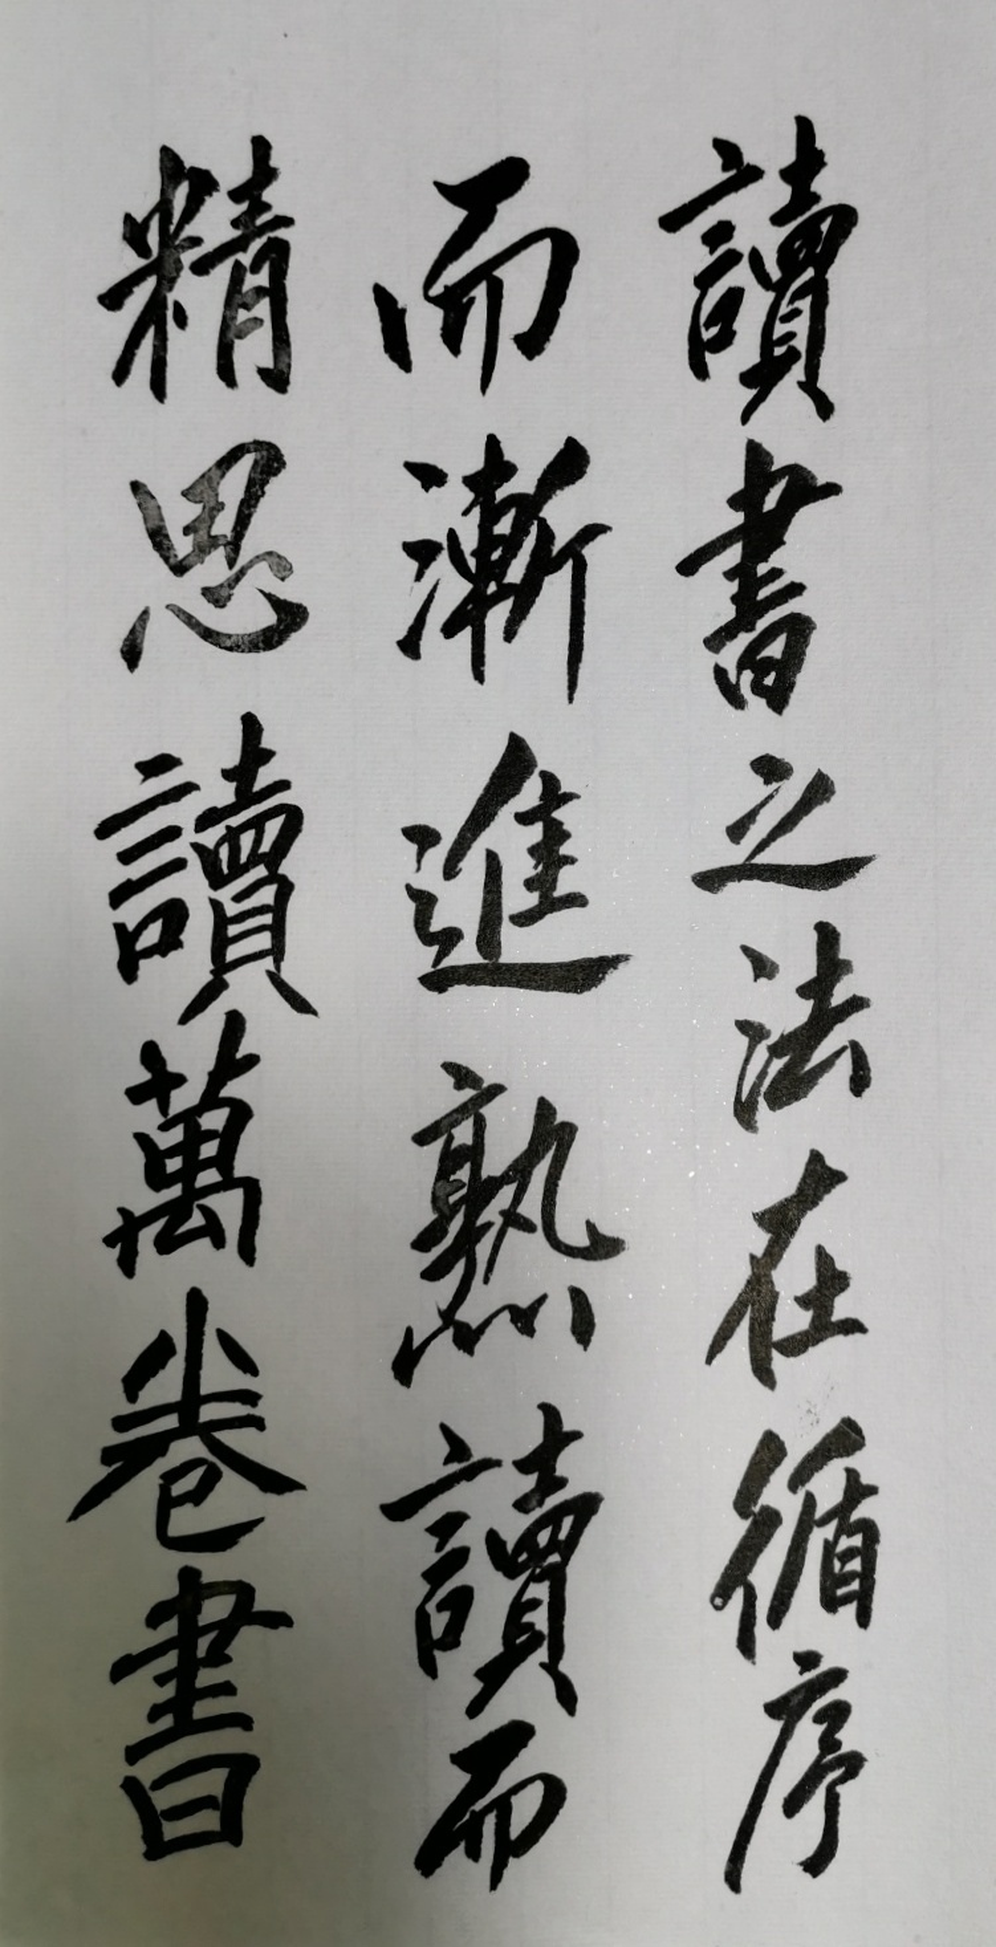 讀書之法在循序
而漸進熟讀而
精思讀萬卷書